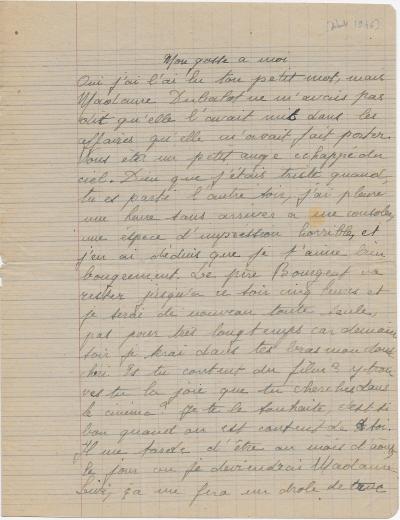 Mon gosse a moi
Oui j'ai l'ai lu ton petit mot, mais
Madame Dubalot ne m'avais pas
dit qu'elle l'avait mis dans les
affaires qu'elle m'avait fait porter
Vous êtes un petit ange echappé du
ciel. Dieu que j'étais triste quand
tu es parti l'autre soir, j'ai pleuré
une heure sans arriver a me consoler,
une espece d'impression horrible, et
j'en ai déduis que je t'aime bien
bougrement. Le père Bourgeat va
rester jusqu'a ce soir cinq heures et
je serai de nouveau toute seule,
pas pour très longtemps car demain
soir je serai dans tes bras mon doux
chéri. Es tu content du film? y trou
ves tu la joie que tu cherches dans
le cinéma? Je te le souhaite, c'est si
bon quand on est content de soi.
Il me tarde d'être au mois d'août
le jour ou je deviendrai Madame
ça me fera un drole de truc